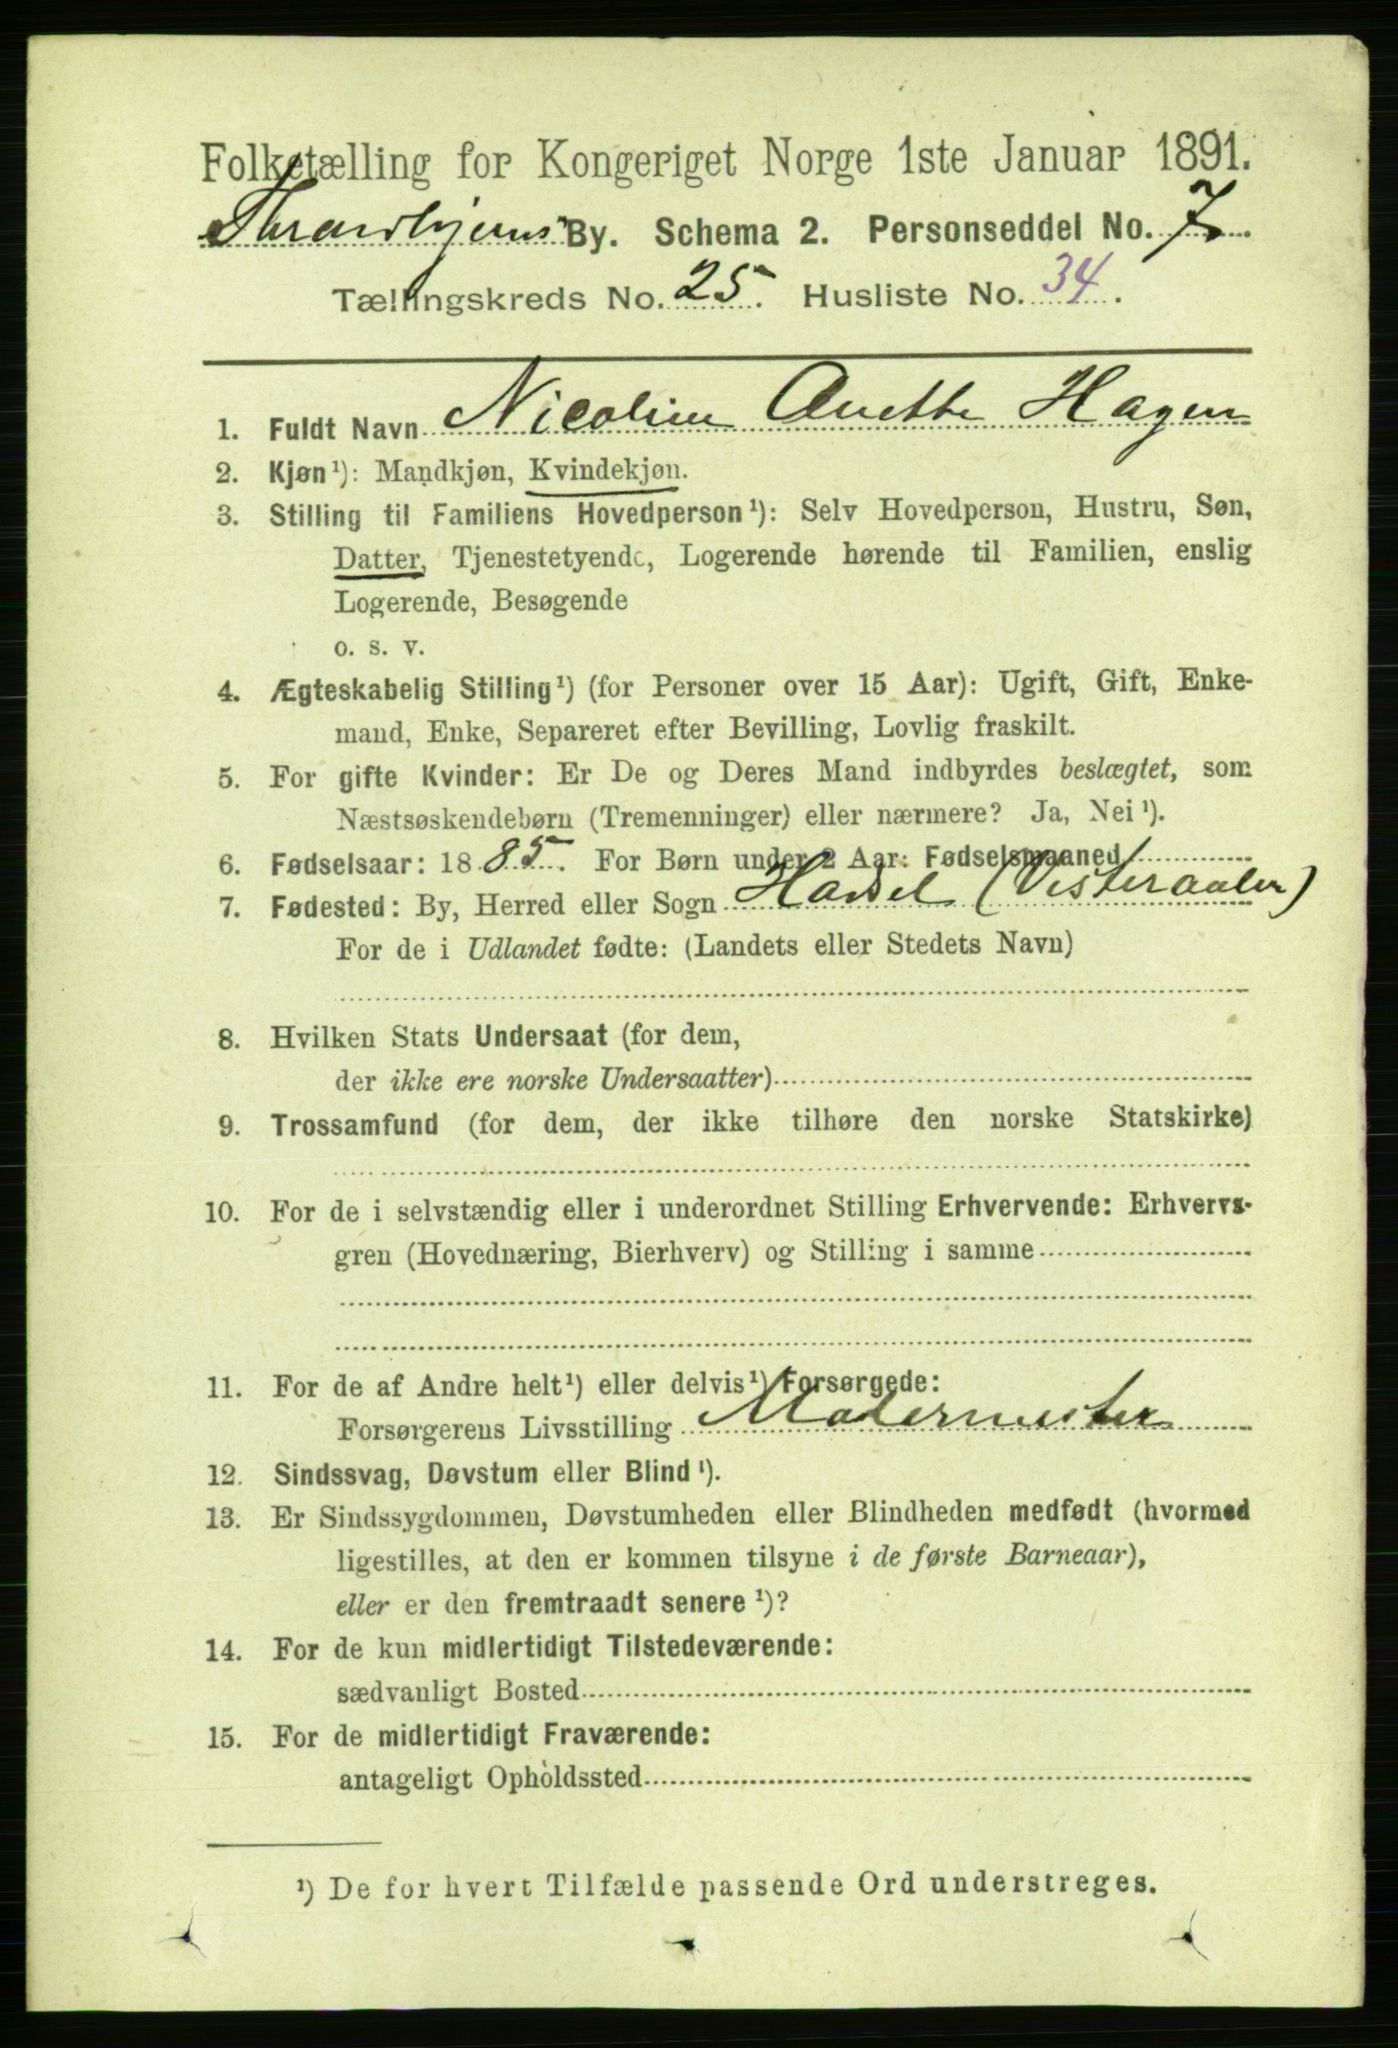 Folketælling for Kongeriget Norge 1ste Januar 1891.
Throndhjems By. Schema 2. Personseddel No. 7.
Tællingskreds No. 25. Husliste No. 34.
1. Fuldt Navn Nicoline Anette Hagen
2. Kjøn¹): Mandkjøn, Kvindekjøn.
3. Stilling til Familiens Hovedperson¹): Selv Hovedperson, Hustru, Søn,
Datter, Tjenestetyende, Logerende hørende til Familien, enslig
Logerende, Besøgende
o. s. v.
4. Ægteskabelig Stilling¹) (for Personer over 15 Aar): Ugift, Gift, Enke-
mand, Enke, Separeret efter Bevilling, Lovlig fraskilt.
5. For gifte Kvinder: Er De og Deres Mand indbyrdes beslægtet, som
Næstsøskendebørn (Tremenninger) eller nærmere? Ja, Nei¹).
6. Fødselsaar: 1885. For Børn under 2 Aar: Fødselsmaaned
7. Fødested: By, Herred eller Sogn Hassel (Vesteraalen)
For de i Udlandet fødte: (Landets eller Stedets Navn)
8. Hvilken Stats Undersaat (for dem,
der ikke ere norske Undersaatter)
9. Trossamfund (for dem, der ikke tilhøre den norske Statskirke)
10. For de i selvstændig eller i underordnet Stilling Erhvervende: Erhvervs-
gren (Hovednæring, Bierhverv) og Stilling i samme
11. For de af Andre helt¹) eller delvis¹) Forsørgede:
Forsørgerens Livsstilling Malermester
12. Sindssvag, Døvstum eller Blind¹).
13. Er Sindssygdommen, Døvstumheden eller Blindheden medfødt (hvormed
ligestilles, at den er kommen tilsyne i de første Barneaar),
eller er den fremtraadt senere¹)?
14. For de kun midlertidigt Tilstedeværende:
sædvanligt Bosted
15. For de midlertidigt Fraværende:
antageligt Opholdssted
¹) De for hvert Tilfælde passende Ord understreges.